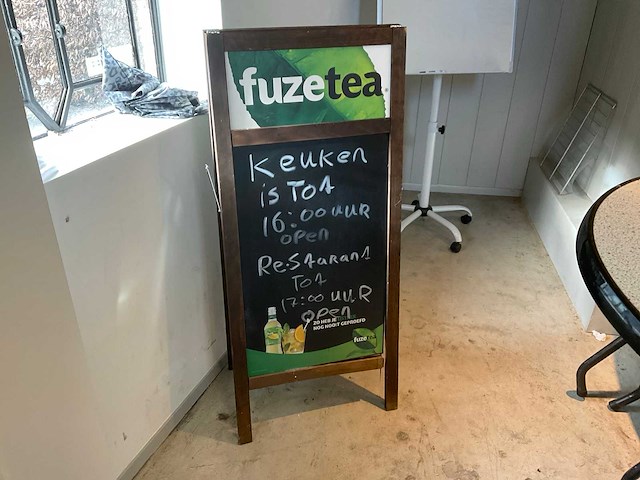 fuzetea
Keuken
is TOT
16:00 uuR
open
ReStaurant
TOT
17:00 uuR
open
ZO HEB JE THEE
NOG NOOIT GEPROEFD
fuze